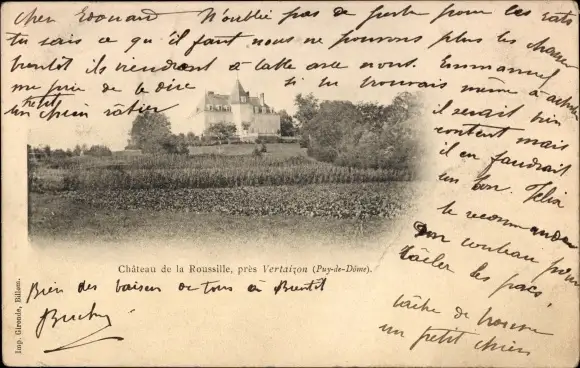 Cher Edouard N'oublie pas de poste pour les rats
tu sais ce qu'il faut nous ne pouvons plus les chasser
bientôt ils viendront à table avec nous. Emmanuel
me prie de te dire si tu trouvais même à acheter
un petit chien ratier
il serait bien
content mais
il en faudrait
un bon. Félix
te recommande
son couteau pour
tailer les
tache de trouver
un petit chien
Château de la Roussille, près Vertaizon (Puy-de-Dôme).
Bien des baiser de tous à Bientôt
Imp. Gironde, Billom.